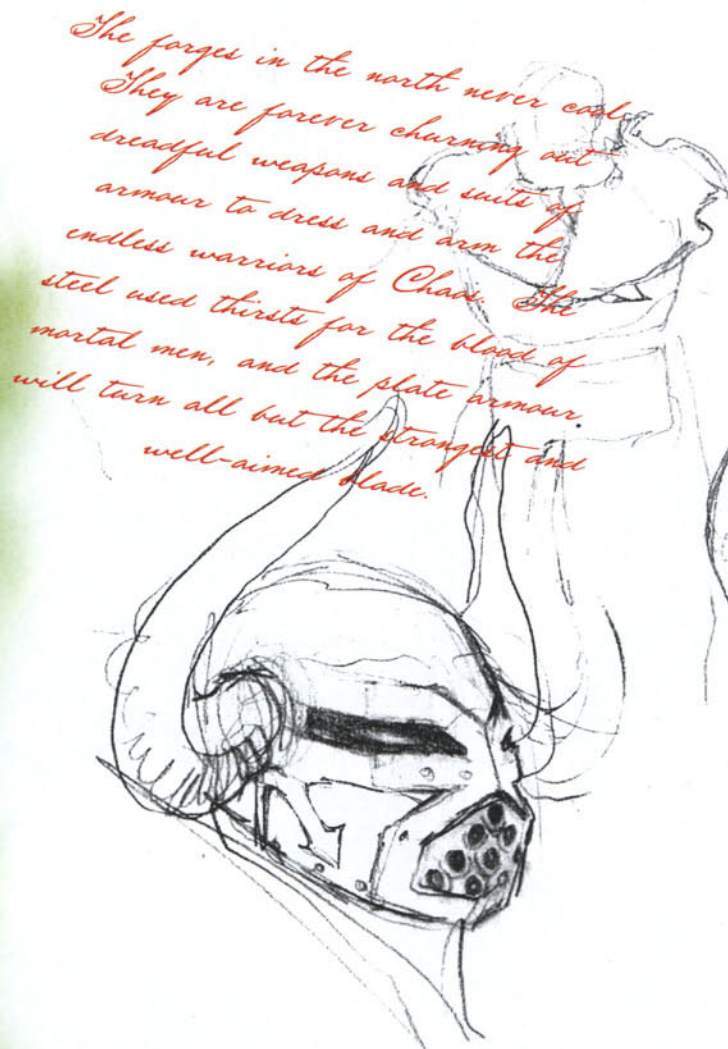 The forges in the north never cool.
They are forever churning out
dreadful weapons and suits of
armour to dress and arm the
endless warriors of Chaos. The
steel used thirsts for the blood of
mortal men, and the plate armour
will turn all but the strongest and
well-aimed blade.